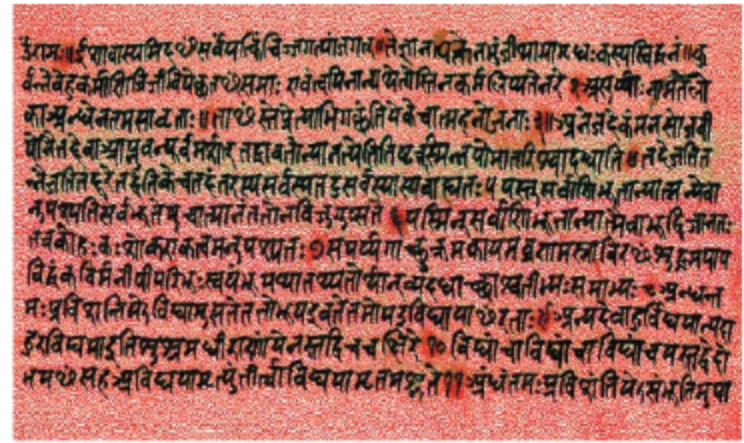 ईशावास्यमिदꣳसर्वंयत्किंचजगत्यांजगत्॥तेनत्यक्तेनभुंजीथामागृधःकस्यस्विद्धनं॥ कु
र्वन्नेवेहकर्माणिजिजीविषेछतꣳसमाः एवंत्वयिनान्यथेतोस्तिनकर्मलिप्यतेनरे २ असुर्य्याःनामतेलो
काअन्धेनतमसावृताः॥ताꣳस्तेप्रेत्याभिगछंतियेकेचात्महनोजनाः ३॥ अनेजदेकंमनसोजवी
योनैनद्देवाआप्नुवन्पूर्वमर्षत् तद्धावतोन्यानत्येतितिष्ठत्तस्मिन्नपोमातरिश्वादधाति ४ तदेजतित
न्नेजतितद्दूरेतद्वंतिकेतदंतरस्यसर्वस्यतदुसर्वस्यास्यबाह्यतः ५ यस्तुसर्वाणिभूतान्यात्मन्येवा
नुपश्यतिसर्वभूतेषुचात्मानंततोनविजुगुप्सते ६ यस्मिन्सर्वाणिभूतान्यात्मैवाभूद्विजानतः
तत्रकोमोहःकःशोकएकत्वमनुपश्यतः ७ सपर्य्यगाच्छुक्रमकायमव्रणमस्नाविरꣳशुद्धमपाप
विद्धंकविर्मनीषीपरिभूःस्वयंभूर्याथातथ्यतोर्थान्व्यदधाच्छाश्वतीभ्यःसमाभ्यः ८ अन्धन्त
मःप्रविशंतियेऽविद्यामुपासतेततोभूयइवतेतमोयउविद्यायाꣳरताः ९ अन्यदेवाहुर्विद्ययान्यदा
हुरविद्ययाइतिशुश्रुमधीराणांयेनस्तद्विचचक्षिरे १० विद्यांचाविद्यांचयस्तद्वेदो
भयꣳसहअविद्ययामृत्युंतीर्त्वाविद्ययामृतमश्नुते ११ अंधंतमःप्रविशंतियेऽसंभूतिमुपा